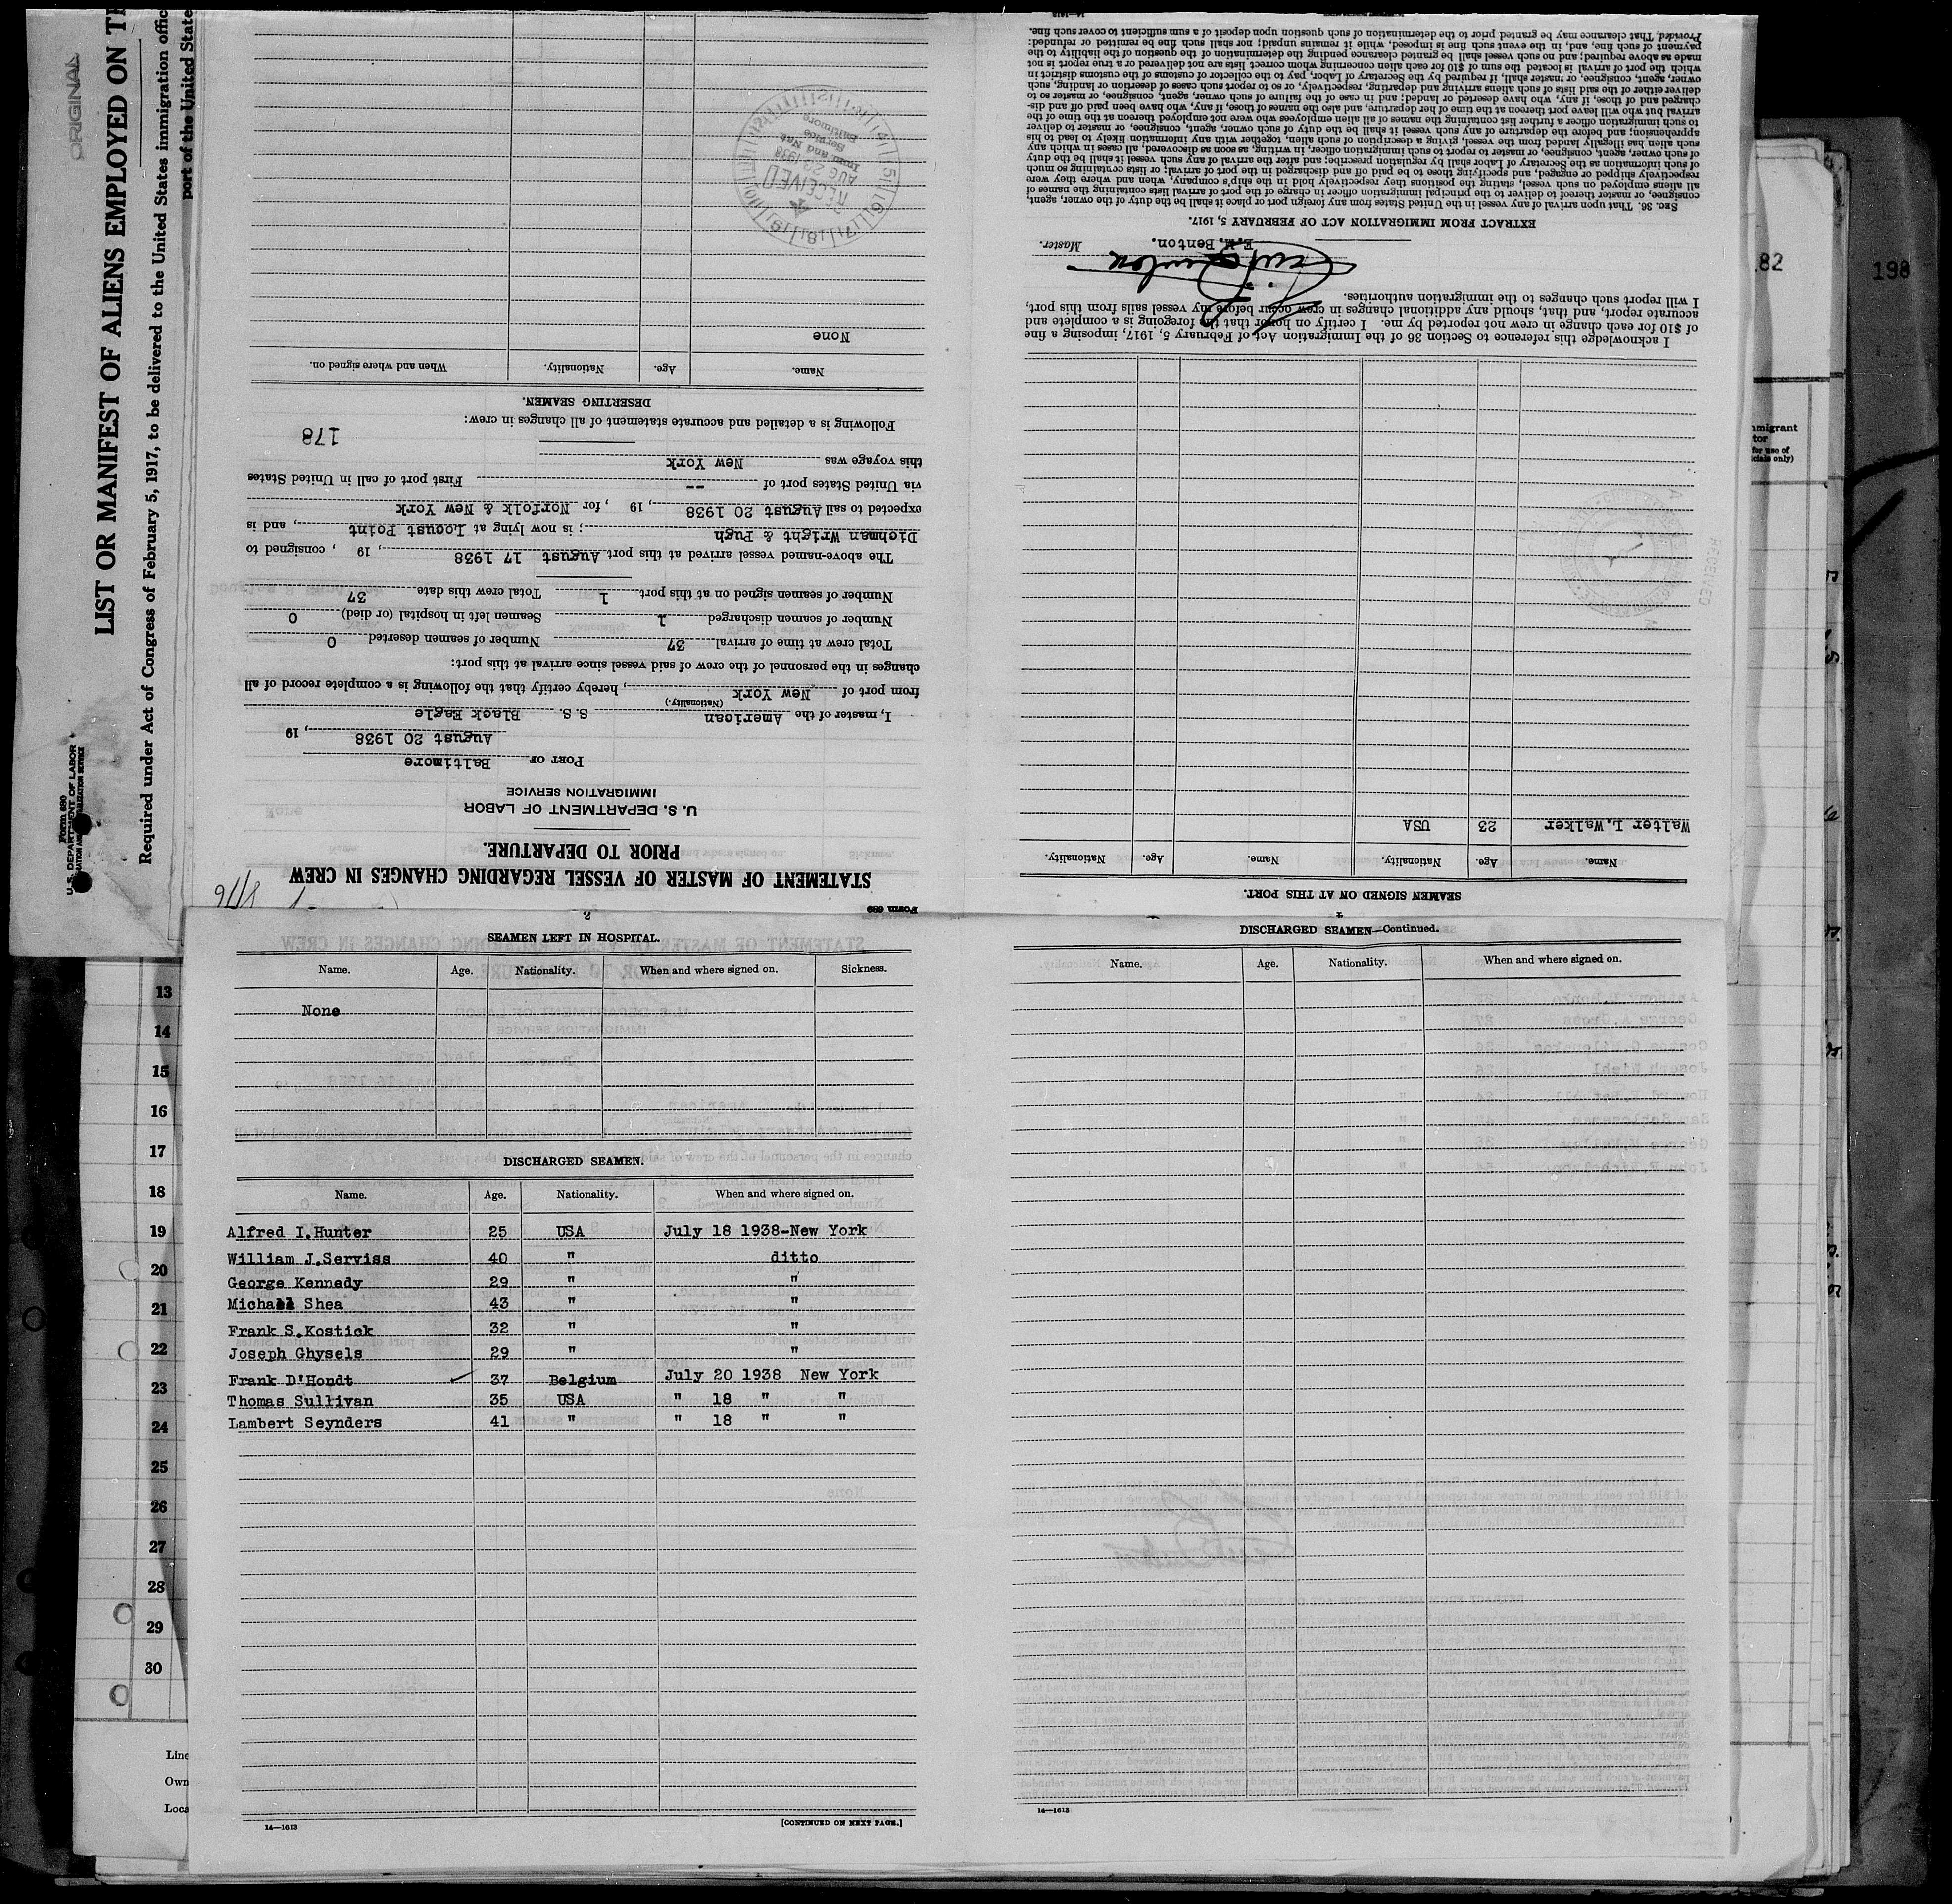 ORIGINAL
LIST OR MANIFEST OF ALIENS EMPLOYED ON
Required under Act of Congress of February 5, 1917, to be delivered to the United States immigration
port of the United State
Form 680
U. S. DEPARTMENT OF LABOR
Form 689
STATEMENT OF MASTER OF VESSEL REGARDING CHANGES IN CREW
PRIOR TO DEPARTURE.
U. S. DEPARTMENT OF LABOR
IMMIGRATION SERVICE
PORT OF Baltimore
August 20 1938, 19
I, master of the American S. S. Black Eagle
(Nationality.)
from port of New York, hereby certify that the following is a complete record of all
changes in the personnel of the crew of said vessel since arrival at this port:
Total crew at time of arrival 37 Number of seamen deserted 0
Number of seamen discharged 1 Seamen left in hospital (or died) 0
Number of seamen signed on at this port 1 Total crew this date 37
The above-named vessel arrived at this port August 17 1938, 19 , consigned to
Dichman Wright & Pugh; is now lying at Locust Point, and is
expected to sail August 20 1938, 19 , for Norfolk & New York
via United States port of -- First port of call in United States
this voyage was New York
178
Following is a detailed and accurate statement of all changes in crew:
DESERTING SEAMEN.
Name. Age. Nationality. When and where signed on.
None
RECEIVED
AUG 22 1938
Service
Baltimore
SEAMEN SIGNED ON AT THIS PORT.
Name. Age. Nationality. Name. Age. Nationality.
Walter L.Walker 23 USA
I acknowledge this reference to Section 36 of the Immigration Act of February 5, 1917, imposing a fine
of $10 for each change in crew not reported by me. I certify on honor that the foregoing is a complete and
accurate report, and that, should any additional changes in crew occur before my vessel sails from this port,
I will report such changes to the immigration authorities.
E.M.Benton. Master.
EXTRACT FROM IMMIGRATION ACT OF FEBRUARY 5, 1917.
SEC. 36. That upon arrival of any vessel in the United States from any foreign port or place it shall be the duty of the owner, agent,
consignee, or master thereof to deliver to the principal immigration officer in charge of the port of arrival lists containing the names of
all aliens employed on such vessel, stating the positions they respectively hold in the ship's company, when and where they were
respectively shipped or engaged, and specifying those to be paid off and discharged in the port of arrival; or lists containing so much
of such information as the Secretary of Labor shall by regulation prescribe; and after the arrival of any such vessel it shall be the duty
of such owner, agent, consignee, or master to report to such immigration officer, in writing, as soon as discovered, all cases in which any
such alien has illegally landed from the vessel, giving a description of such alien, together with any information likely to lead to his
apprehension; and before the departure of any such vessel it shall be the duty of such owner, agent, consignee, or master to deliver
to such immigration officer a further list containing the names of all alien employees who were not employed thereon at the time of the
arrival but who will leave port thereon at the time of her departure, and also the names of those, if any, who have been paid off and dis-
charged and of those, if any, who have deserted or landed; and in case of the failure of such owner, agent, consignee, or master so to
deliver either of the said lists of such aliens arriving and departing, respectively, or so to report such cases of desertion or landing, such
owner, agent, consignee, or master shall, if required by the Secretary of Labor, pay to the collector of customs of the customs district in
which the port of arrival is located the sum of $10 for each alien concerning whom correct lists are not delivered or a true report is not
made as above required; and no such vessel shall be granted clearance pending the determination of the question of the liability to the
payment of such fine, and, in the event such fine is imposed, while it remains unpaid; nor shall such fine be remitted or refunded:
Provided, That clearance may be granted prior to the determination of such question upon deposit of a sum sufficient to cover such fine.
82
198
13
14
15
16
17
18
19
20
21
22
23
24
25
26
27
28
29
30
SEAMEN LEFT IN HOSPITAL.
Name. Age. Nationality. When and where signed on. Sickness.
None
DISCHARGED SEAMEN.
Name. Age. Nationality. When and where signed on.
Alfred I.Hunter 25 USA July 18 1938-New York
William J.Serviss 40 " ditto
George Kennedy 29 " "
Michael Shea 43 " "
Frank S.Kostick 32 " "
Joseph Ghysels 29 " "
Frank D'Hondt 37 Belgium July 20 1938 New York
Thomas Sullivan 35 USA " 18 " "
Lambert Seynders 41 " " 18 " "
14—1613 [CONTINUED ON NEXT PAGE.]
DISCHARGED SEAMEN—Continued.
Name. Age. Nationality. When and where signed on.
14—1613